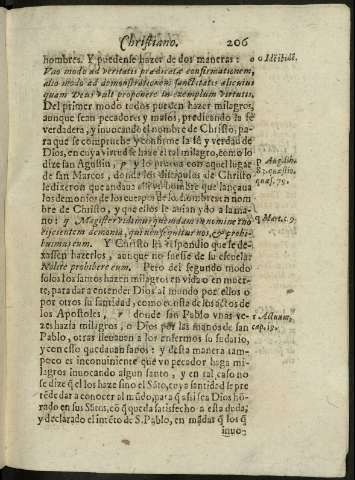 Christiano. 206
hombres. Y puedense hazer de dos maneras: o
o Ibidē.
Vno modo ad veritatis prædicatæ confirmationem,
alio modo ad demonstrationem sanctitatis alicuius
quam Deus vult proponere in exemplum virtutis.
Del primer modo todos pueden hazer milagros,
aunque sean pecadores y malos, predicando la fè
verdadera, y inuocando el nombre de Christo, pa-
ra que se comprueue y confirme la fè y verdad de
Dios, en cuya virtud se haze el tal milagro, como lo
dize san Agustin, p y lo prueua con aquel lugar
p Augu. lib.
de san Marcos, donde los dicipulos de Christo
83. quæstio.
le dixeron que andaua allí vn hombre que lançaua
quæs. 79.
los demonios de los cuerpos de los hombres en nom
bre de Christo, y que ellos le auian ydo a la ma-
no: q Magister vidimus quendam in nomine tuo
q Marc. 9.
eijcientem demonia, qui non sequitur nos, & prohi-
buimus eum. Y Christo les respondio que le de-
xassen hazerlos, aunque no fuesse de su escuela:
Nolite prohibere eum. Pero del segundo modo
solos los santos hazen milagros en vida o en muer-
te, para dar a entender Dios al mundo por ellos o
por otros su santidad, como consta de los actos de
los Apostoles, r donde san Pablo vnas ve-
r Actuum.
zes hazia milagros, o Dios por las manos de san
cap. 19.
Pablo, otras lleuauan a los enfermos su sudario,
y con esso quedauan sanos: y desta manera tam-
poco es inconuiniente que vn pecador haga mi-
lagros inuocando algun santo, y en tal caso no
se dize q̃ el los haze sino el Sāto, cuya santidad se pre
tēde dar a conocer al mūdo, para q̃ assi sea Dios hō-
rado en sus Sātos, cō q̃ queda satisfecho a esta duda,
y declarado el intēto de S. Pablo, en mādar q̃ los q̃
inuo-